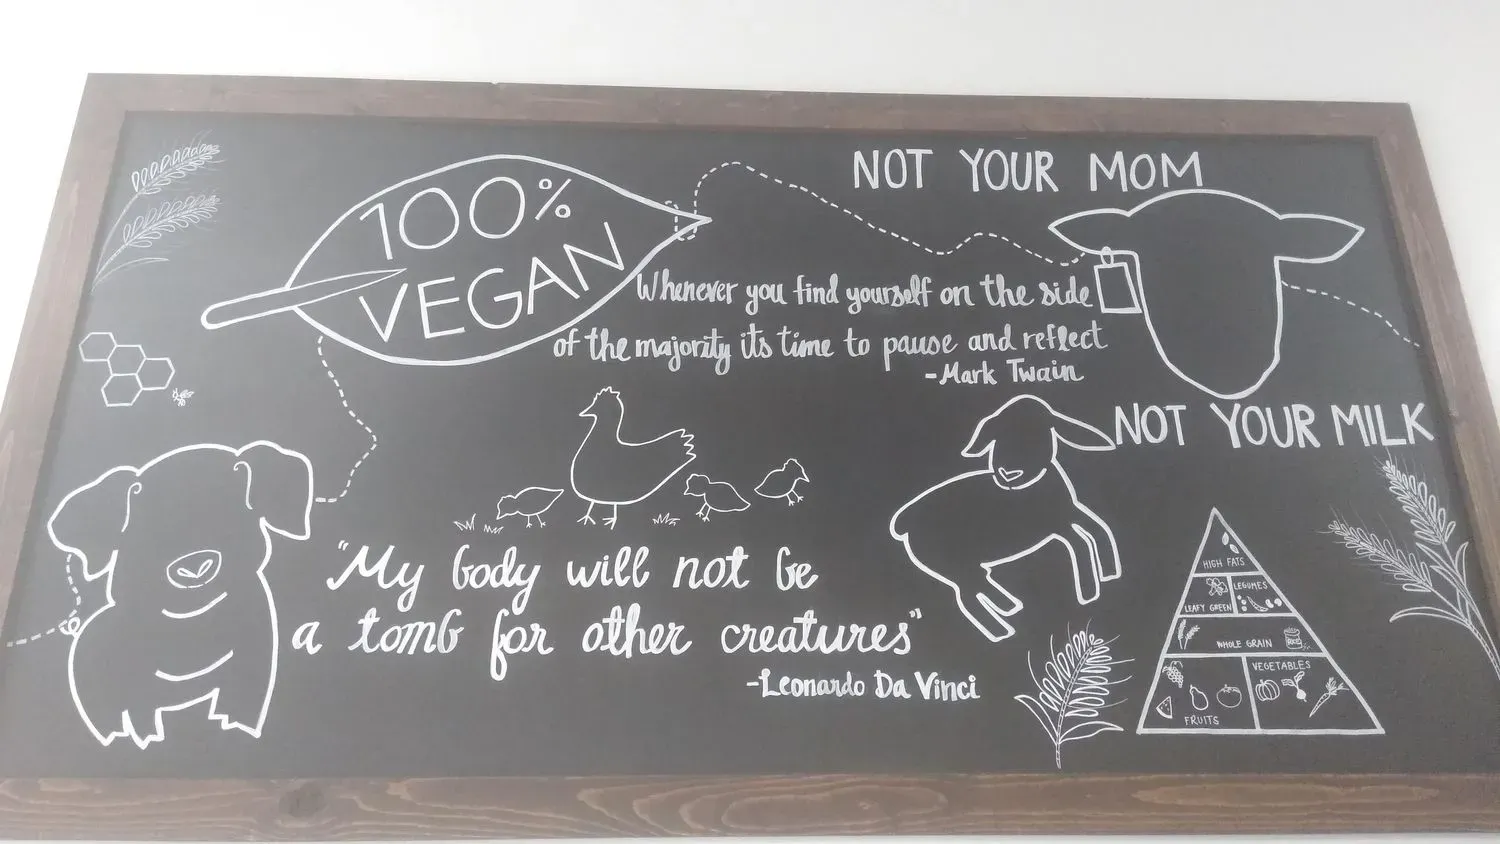 100%
VEGAN
NOT YOUR MOM
Whenever you find yourself on the side
of the majority its time to pause and reflect
-Mark Twain
NOT YOUR MILK
"My body will not be
a tomb for other creatures"
-Leonardo Da Vinci
HIGH FATS
LEAFY GREEN
LEGUMES
WHOLE GRAIN
FRUITS
VEGETABLES